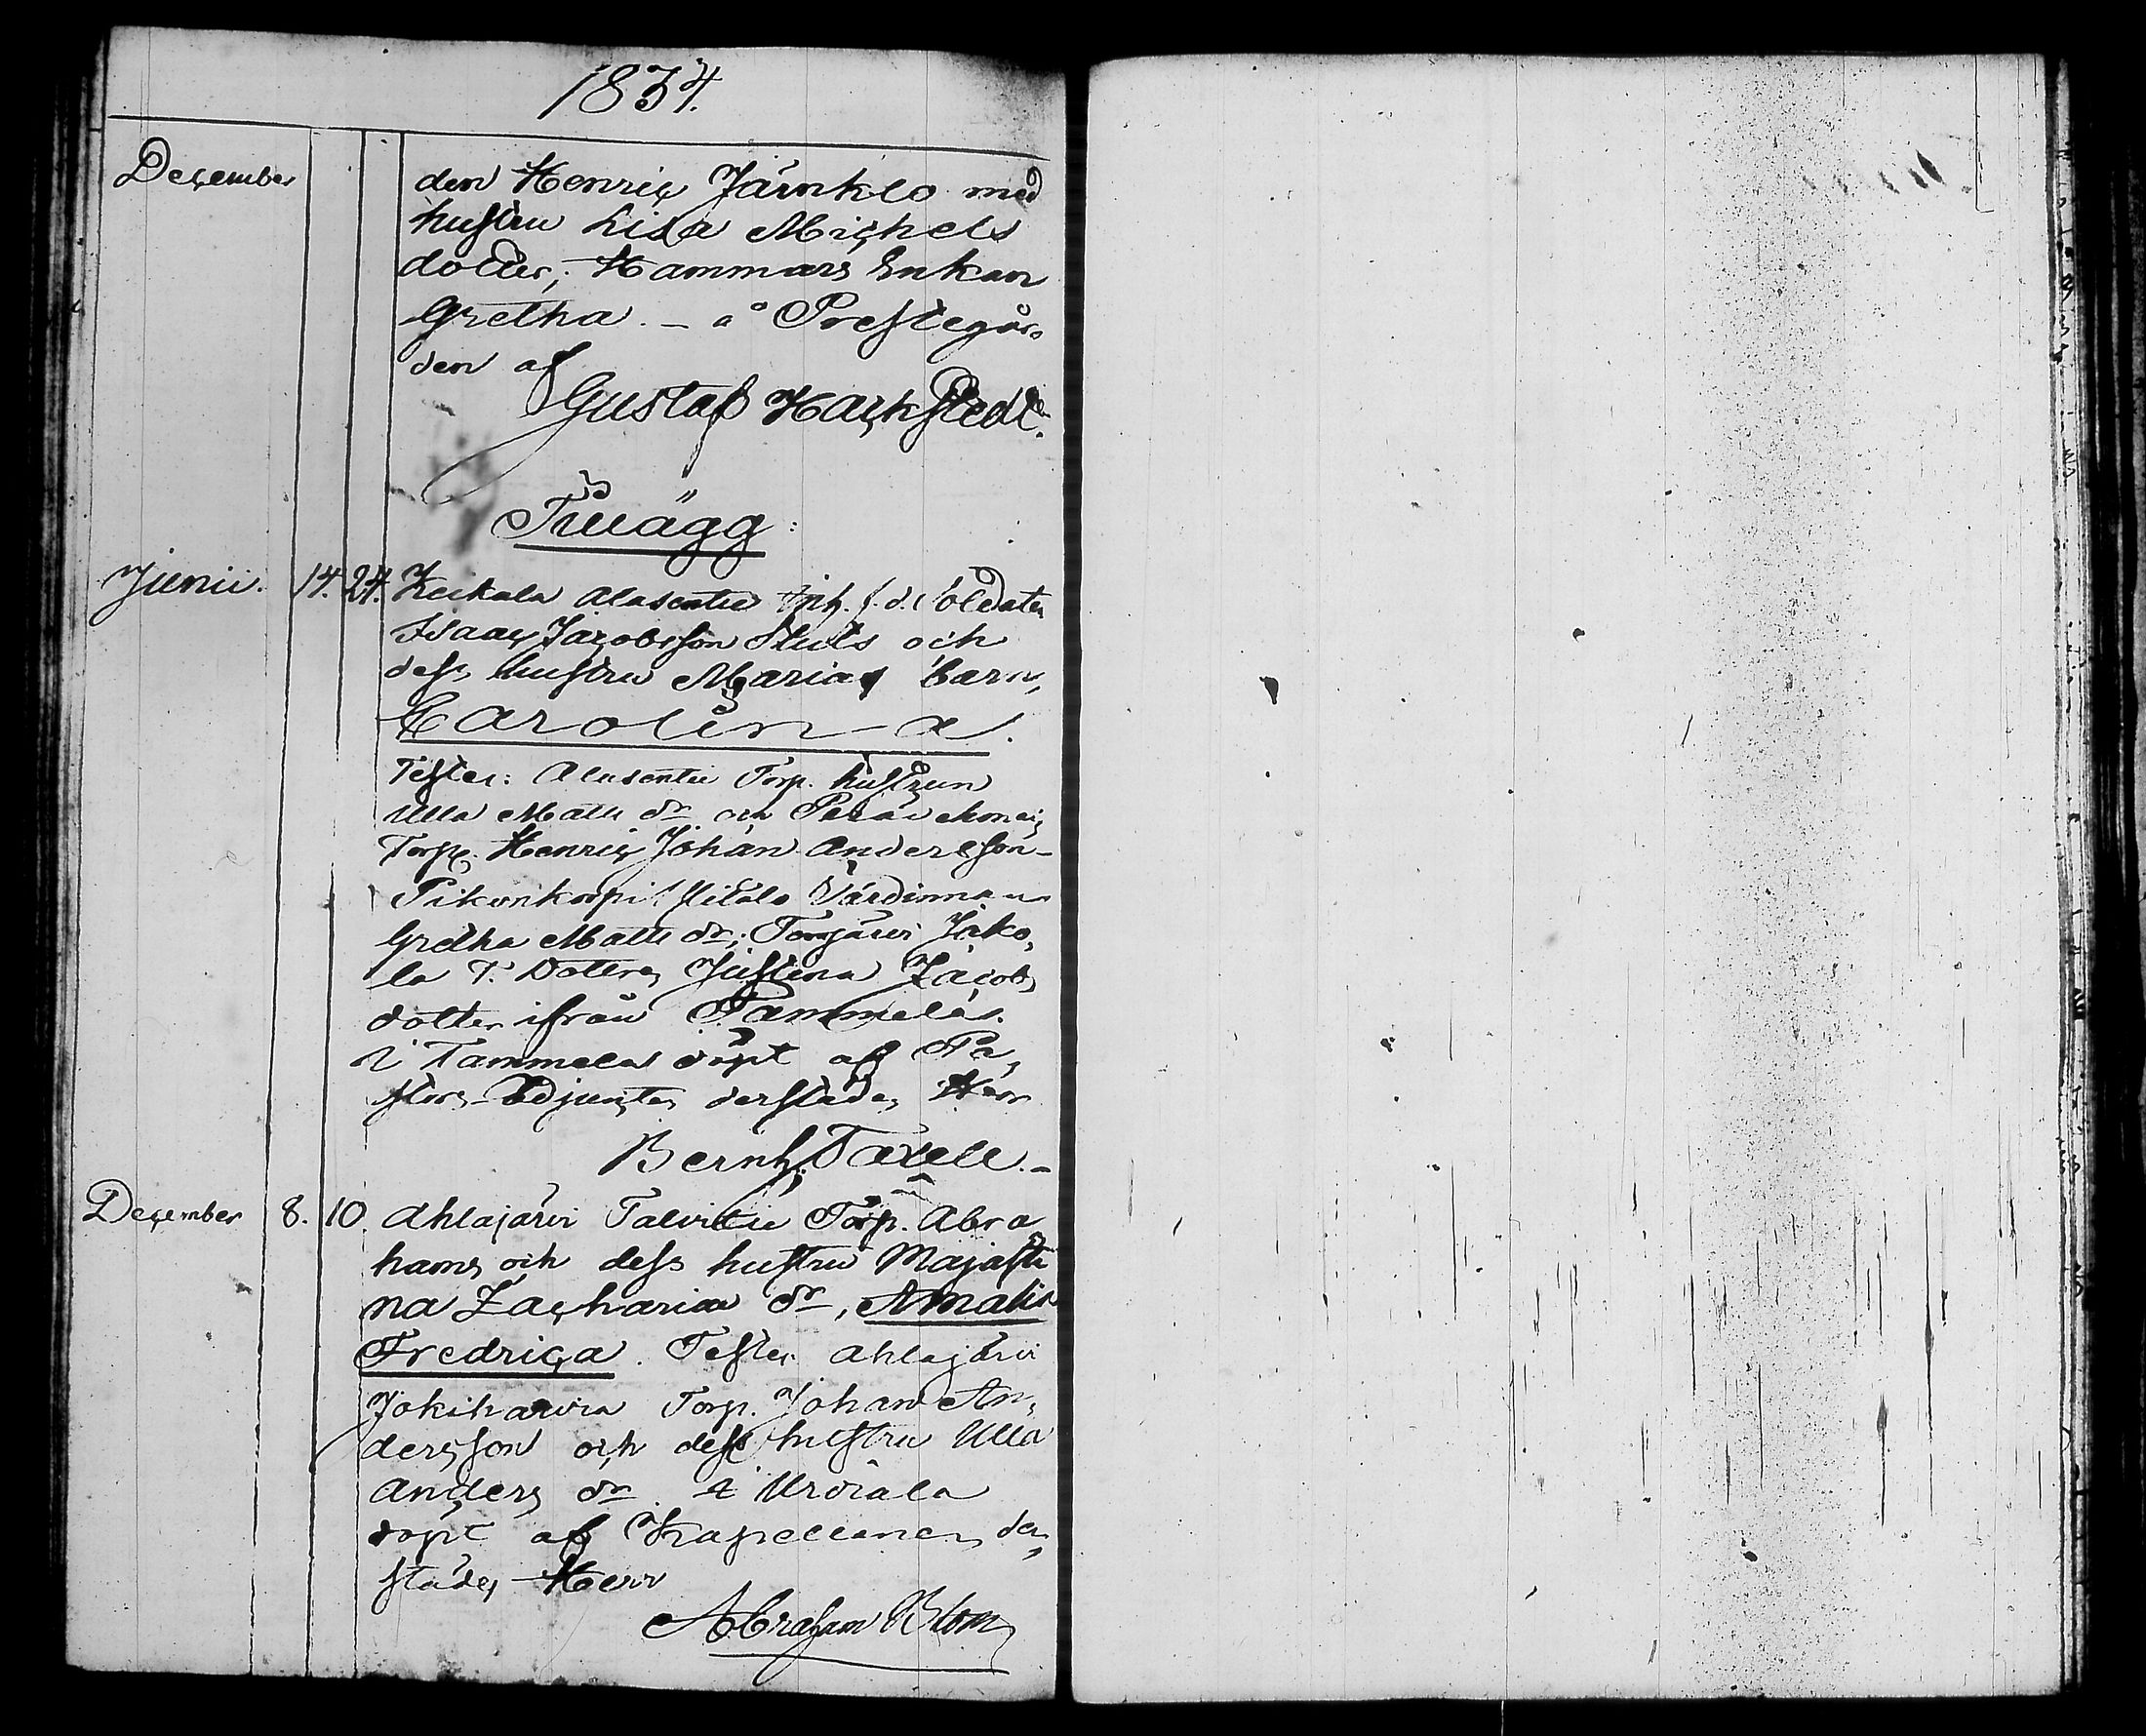 1834.
December
den Henric Järnklo med
hustru Lisa Michels
dotter, Hammars Enkan
Gretha. - å Prestegår,
den af
Gustaf Hackstedt.
Tillägg:
Junii. 14. 24. Keikala Alasentie Inh. f.d. Soldaten
Isaac Jacobsson Stuts och
dess hustru Marias barn,
Carolina.
Testes: Alasentie Torp. hustrun
Ulla Matts dr och
Torp. Henric Johan Andersson
Pikonkorpi Värdinnan
Gretha Matts dr; Torrjärvi Jako,
la T. Dotter Justina Jacobs
dotter ifrån Tammela.
i Tammela döpt af Pa,
stors Adjuncten derstädes Herr
Bernh. Taxell.-
December 8. 10. Ahlajärvi Talvitie Torp. Abra
hams och dess hustru Majasti
na Zacharias dr, Amalia
Fredrica. Testes Ahlajärvi
Jokiharvia Torp. Johan An,
dersson och dess hustru Ulla
Anders dr. i Urdiala
döpt af Kapellanen der,
städes Herr
Abraham Blom